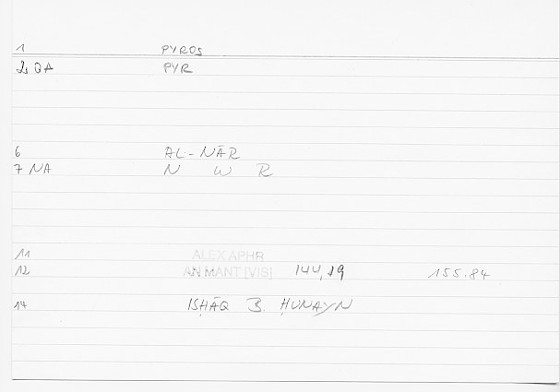 1 PYROS
2 QA PYR
6 AL-NĀR
7 NA N W R
11 ALEX APHR
12 AN MANT [VIS] 144,19 155.84
14 ISḤĀQ B. ḤUNAYN